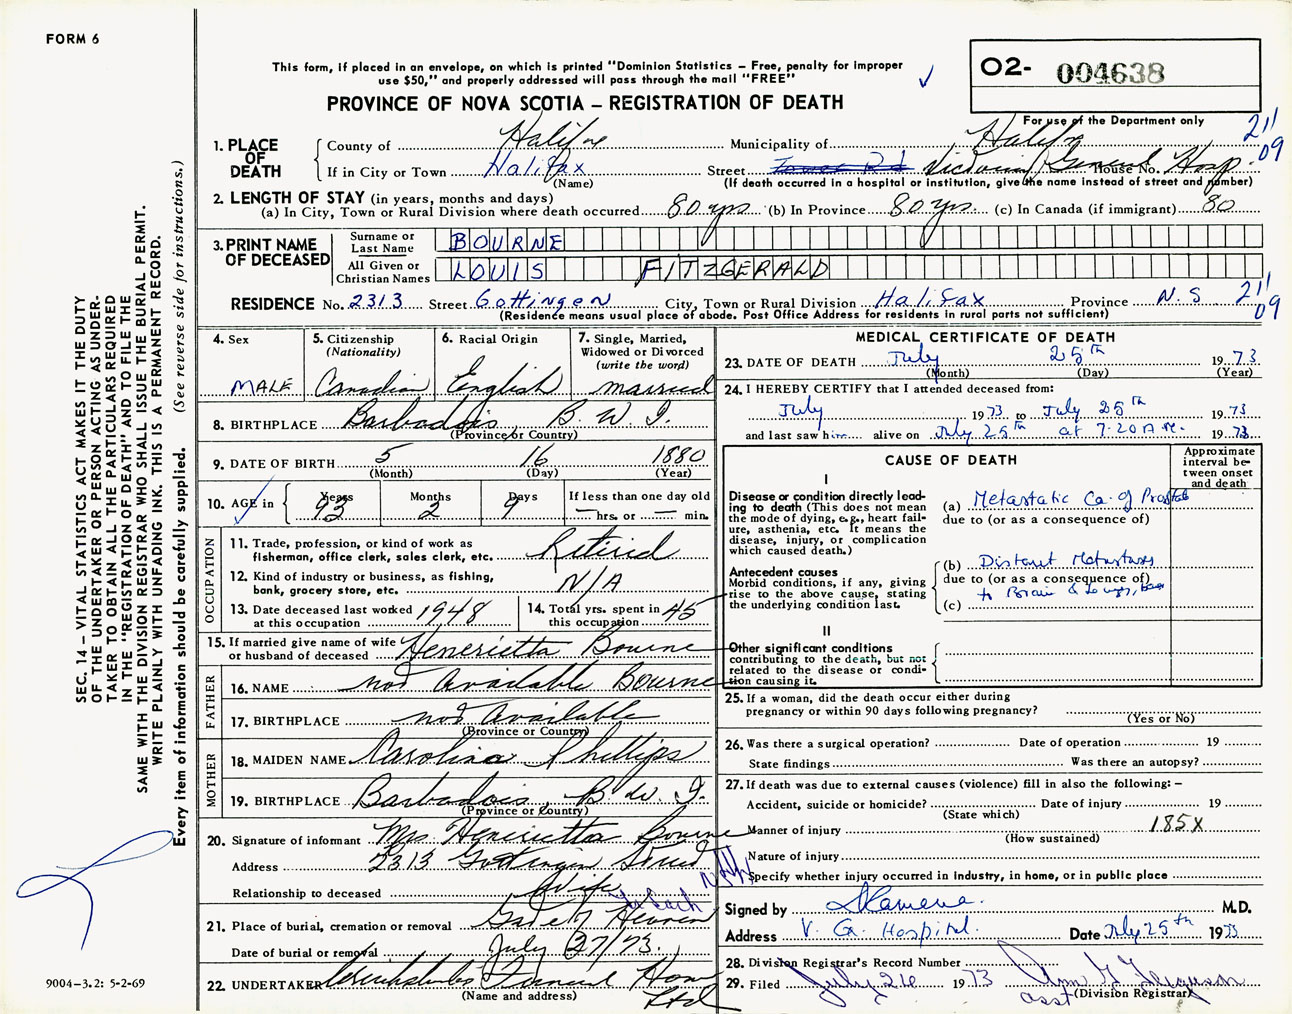 FORM 6
This form, if placed in an envelope, on which is printed "Dominion Statistics – Free, penalty for improper
use $50," and properly addressed will pass through the mail "FREE"
PROVINCE OF NOVA SCOTIA – REGISTRATION OF DEATH
O2- 004638
For use of the Department only
211
09
1. PLACE OF DEATH
County of Halifax Municipality of Halifax
If in City or Town Halifax Street Tower Rd Victoria General Hosp. House No.
(Name) (If death occurred in a hospital or institution, give the name instead of street and number)
2. LENGTH OF STAY (in years, months and days)
(a) In City, Town or Rural Division where death occurred 80 yrs (b) In Province 80 yrs. (c) In Canada (if immigrant) 80
3. PRINT NAME OF DECEASED
Surname or Last Name BOURNE
All Given or Christian Names LOUIS FITZGERALD
RESIDENCE No. 2313 Street Gottingen City, Town or Rural Division Halifax Province N.S
211
09
(Residence means usual place of abode. Post Office Address for residents in rural parts not sufficient)
4. Sex MALE
5. Citizenship (Nationality) Canadian
6. Racial Origin English
7. Single, Married, Widowed or Divorced (write the word) married
8. BIRTHPLACE Barbadois B.W.I.
(Province or Country)
9. DATE OF BIRTH 5 16 1880
(Month) (Day) (Year)
10. AGE in Years 93 Months 2 Days 9 If less than one day old — hrs. or — min.
OCCUPATION
11. Trade, profession, or kind of work as fisherman, office clerk, sales clerk, etc. Retired
12. Kind of industry or business, as fishing, bank, grocery store, etc. N/A
13. Date deceased last worked at this occupation 1948
14. Total yrs. spent in this occupation 45
15. If married give name of wife or husband of deceased Henerietta Bourne
FATHER
16. NAME not Available Bourne
17. BIRTHPLACE not Available
(Province or Country)
MOTHER
18. MAIDEN NAME Carolina Phillips
19. BIRTHPLACE Barbadois, B.W.I.
(Province or Country)
20. Signature of informant Mrs Henerietta Bourne
Address 2313 Gottingin Street
Relationship to deceased Wife
21. Place of burial, cremation or removal Gate of Heaven
Date of burial or removal July 27/73.
22. UNDERTAKER Funeral Home Ltd
(Name and address)
MEDICAL CERTIFICATE OF DEATH
23. DATE OF DEATH July 25th 1973
(Month) (Day) (Year)
24. I HEREBY CERTIFY that I attended deceased from:
July 1973 to July 25th 1973
and last saw him alive on July 25th at 7.20 A.M. 1973
CAUSE OF DEATH
Approximate interval between onset and death
I
Disease or condition directly leading to death (This does not mean the mode of dying, e.g., heart failure, asthenia, etc. It means the disease, injury, or complication which caused death.)
(a) Metastatic Ca. of Prostate
due to (or as a consequence of)
Antecedent causes
Morbid conditions, if any, giving rise to the above cause, stating the underlying condition last.
(b) Distant Metastases
due to (or as a consequence of)
to Brain & Lungs,
(c)
II
Other significant conditions
contributing to the death, but not related to the disease or condition causing it.
25. If a woman, did the death occur either during
pregnancy or within 90 days following pregnancy?
(Yes or No)
26. Was there a surgical operation? Date of operation 19
State findings Was there an autopsy?
27. If death was due to external causes (violence) fill in also the following: –
Accident, suicide or homicide? Date of injury 19
(State which)
Manner of injury 185X
(How sustained)
Nature of injury
Specify whether injury occurred in industry, in home, or in public place
Signed by M.D.
Address V. G. Hospital. Date July 25th 1973
28. Division Registrar's Record Number
29. Filed July 26 1973 Ferguson
asst (Division Registrar)
SEC. 14 – VITAL STATISTICS ACT MAKES IT THE DUTY
OF THE UNDERTAKER OR PERSON ACTING AS UNDER-
TAKER TO OBTAIN ALL THE PARTICULARS REQUIRED
IN THE "REGISTRATION OF DEATH" AND TO FILE THE
SAME WITH THE DIVISION REGISTRAR WHO SHALL ISSUE THE BURIAL PERMIT.
WRITE PLAINLY WITH UNFADING INK. THIS IS A PERMANENT RECORD.
Every item of information should be carefully supplied. (See reverse side for instructions.)
9004-3.2: 5-2-69